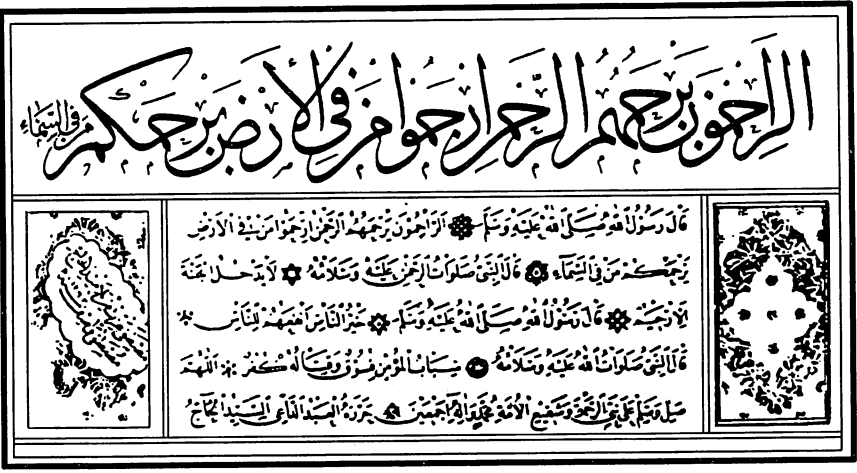 الراحمون يرحمهم الرحمن ارحموا من في الأرض يرحمكم من في السماء
قال رسول الله صلى الله عليه وسلم الراحمون يرحمهم الرحمن ارحموا من في الأرض
يرحمكم من في السماء قال النبي صلوات الرحمن عليه وسلامه لا يدخل الجنة
إلا رحيم قال رسول الله صلى الله عليه وسلم خير الناس أنفعهم للناس
قال النبي صلوات الله عليه وسلامه سباب المؤمن فسوق وقتاله كفر اللهم
صل وسلم على نبي الرحمة وشفيع الأمة محمد وآله أجمعين حرره العبد الداعي السيد الحاج